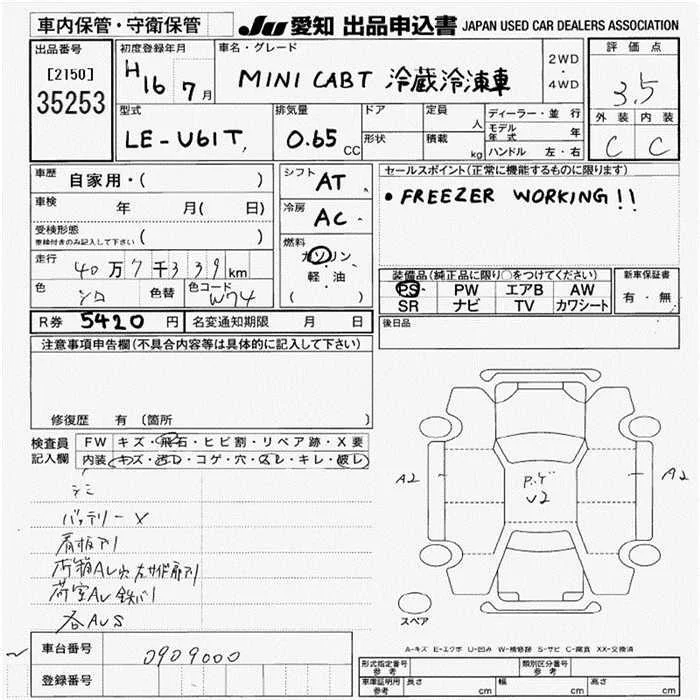 車内保管・守衛保管
JU 愛知 出品申込書 JAPAN USED CAR DEALERS ASSOCIATION
出品番号
[2150]
35253
初度登録年月
H16 7月
車名・グレード
MINI CABT 冷蔵冷凍車
2WD
・
4WD
評価点
3.5
外装 内装
C C
型式
LE-U61T,
排気量
0.65 CC
ドア
形状
定員
人
積載
kg
ディーラー・並行
モデル年式 年
ハンドル 左・右
車歴 自家用・( )
車検 年 月( 日)
受検形態
車検付きのみ記入して下さい ( )
走行 40万7千339km
色 シロ 色替 色コード W74
シフト AT
冷房 AC
燃料
ガソリン
・
軽・油
( )
セールスポイント(正常に機能するものに限ります)
• FREEZER WORKING!!
装備品(純正品に限り○をつけてください)
PS PW エアB AW
SR ナビ TV カワシート
新車保証書
有・無
R券 5420 円 名変通知期限 月 日
後日品
注意事項申告欄(不具合内容等は具体的に記入して下さい)
修復歴 有 (箇所 )
検査員記入欄
FW キズ・飛石・ヒビ割・リペア跡・X要
内装 キズ・汚レ・コゲ・穴・スレ・キレ・破レ
バッテリーX
看板アリ
各AUS
A2
A2
U2
スペア
A-キズ E-エクボ U-凹み W-補修跡 S-サビ C-腐食 XX-交換済
車台番号 0909000
登録番号
形式指定番号 参考
類別区分番号 参考
車庫証明用 参考 長さ cm 幅 cm 高さ cm